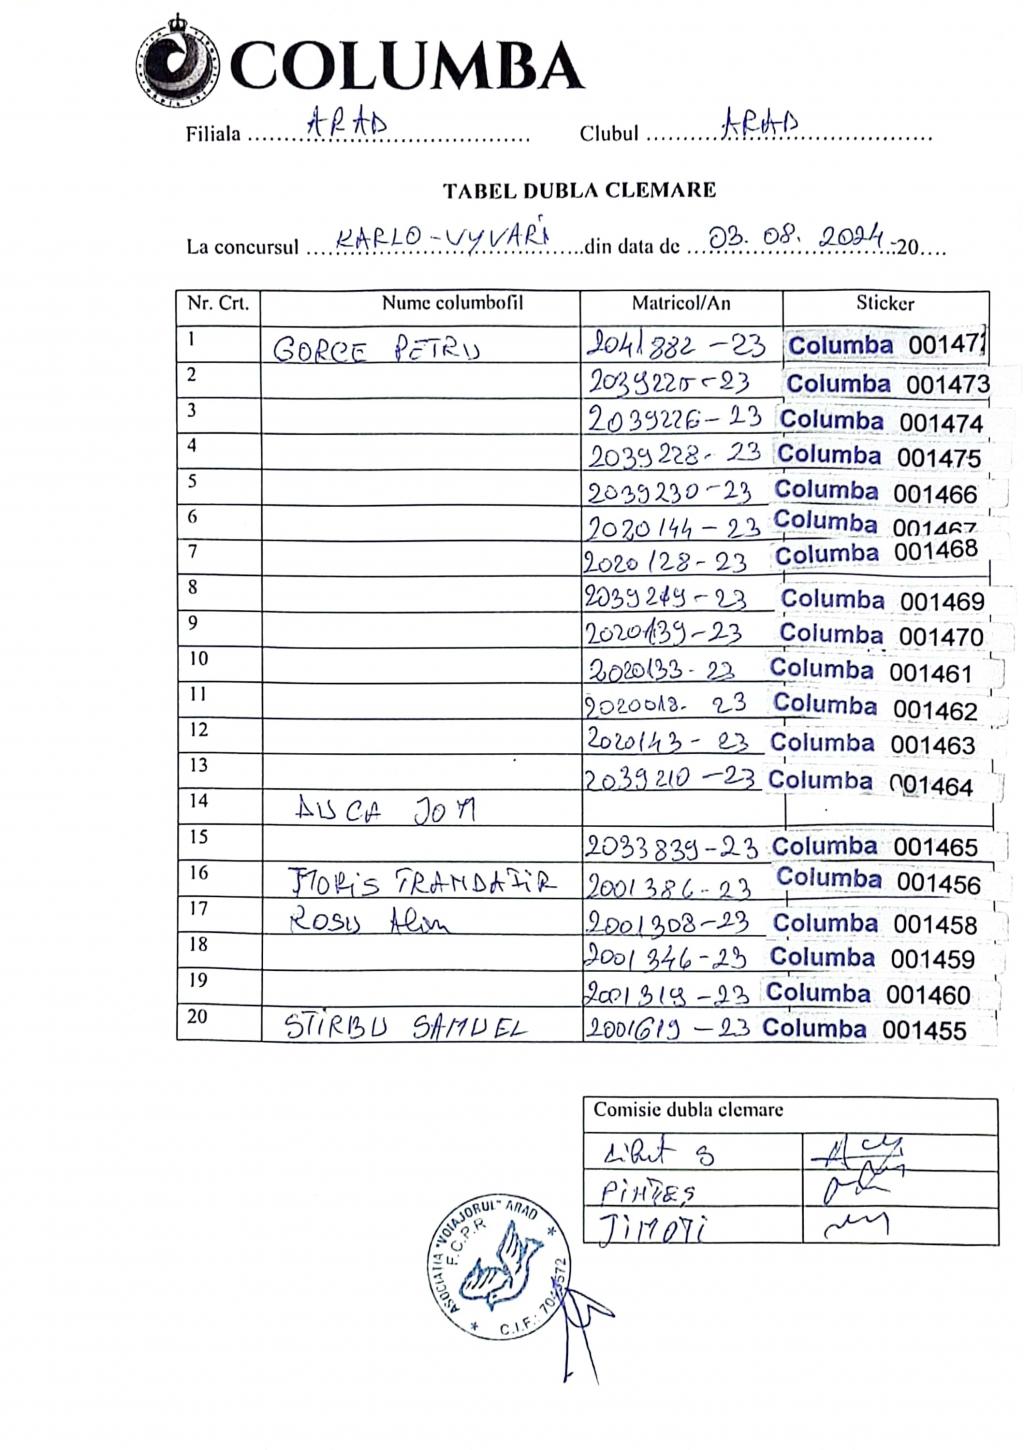 COLUMBA
Filiala ARAD Clubul ARAD
TABEL DUBLA CLEMARE
La concursul KARLO-VYVARI din data de 03. 08. 2024 20....
Nr. Crt. Nume columbofil Matricol/An Sticker
1 GORCE PETRU 2041882-23 Columba 001471
2 2039225-23 Columba 001473
3 2039226-23 Columba 001474
4 2039228-23 Columba 001475
5 2039230-23 Columba 001466
6 2020144-23 Columba 001467
7 2020128-23 Columba 001468
8 2039249-23 Columba 001469
9 2020139-23 Columba 001470
10 2020133-23 Columba 001461
11 2020018-23 Columba 001462
12 2020143-23 Columba 001463
13 2039210-23 Columba 001464
14 DUCA
15 2033839-23 Columba 001465
16 TRANDAFIR 2001386-23 Columba 001456
17 ROSU Alin 2001308-23 Columba 001458
18 2001346-23 Columba 001459
19 2001319-23 Columba 001460
20 STIRBU SAMUEL 2001619-23 Columba 001455
Comisie dubla clemare
ASOCIATIA "VOIAJORUL" ARAD
F.C.P.R
C.I.F.: